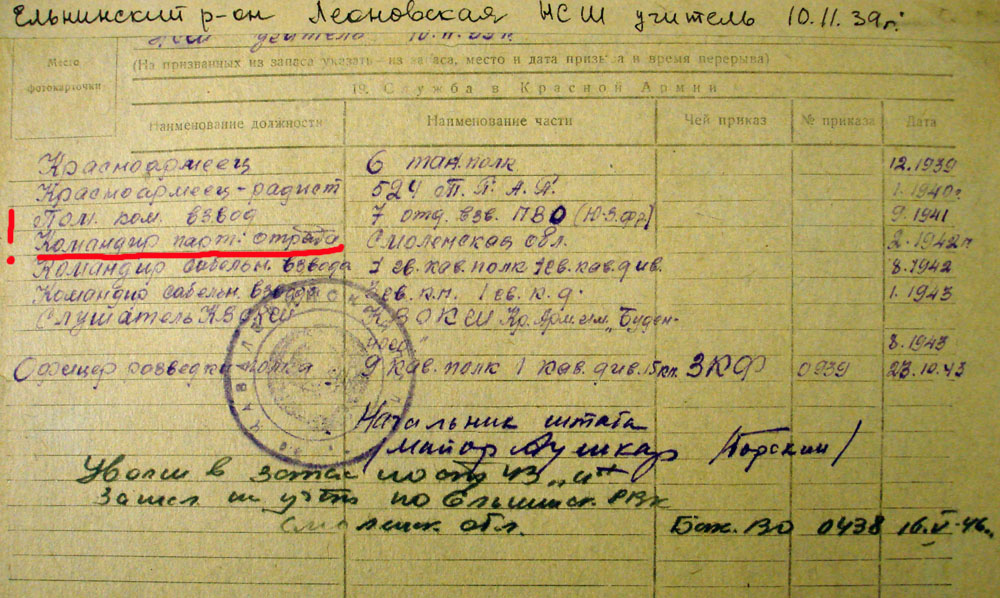 Ельнинский р-он Леоновская НСШ учитель 10.11.39г.
Место фотокарточки
(На призванных из запаса указать - из запаса, место и дата призыва и время перерыва)
19. Служба в Красной Армии
Наименование должности Наименование части Чей приказ № приказа Дата
Красноармеец 6 тан. полк 12.1939
Красноармеец-радист 524 Т.П.А.П. 1.1940г.
! Пом. ком. взвод 7 отд. взв. ПВО (Ю.З.Фр) 9.1941
Командир парт. отряда Смоленская обл. 2.1942г
Командир сабельн. взвода 7 гв. кав. полк 1 гв. кав. див. 8.1942
Командир сабельн. взвода гв. к.п. 1 гв. к.д. 1.1943
Слушатель КВОКСИ КВОКСИ Кр. Арм. им. „Буден-
ного" 8.1943
Офицер разведки полка 9 кав. полк 1 кав. див. 15 кк. ЗКФ 0939 23.10.43
Начальник штаба
майор (Горский)
Уволен в запас по ст 43
Зачисл на учёт по Ельнинск РВК
Смоленск. обл. ВО 0438 16.V-46г.